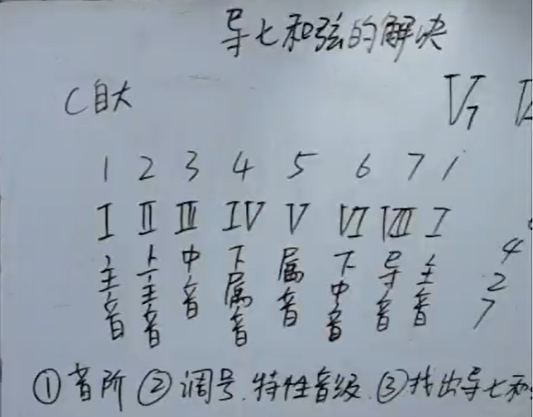 导七和弦的解决
C自大
V7
1 2 3 4 5 6 7 i
I II III IV V VI VII I
主音 上主音 中音 下属音 属音 下中音 导音 主音
4
2
7
①音阶 ②调号.特性音级.③找出导七和